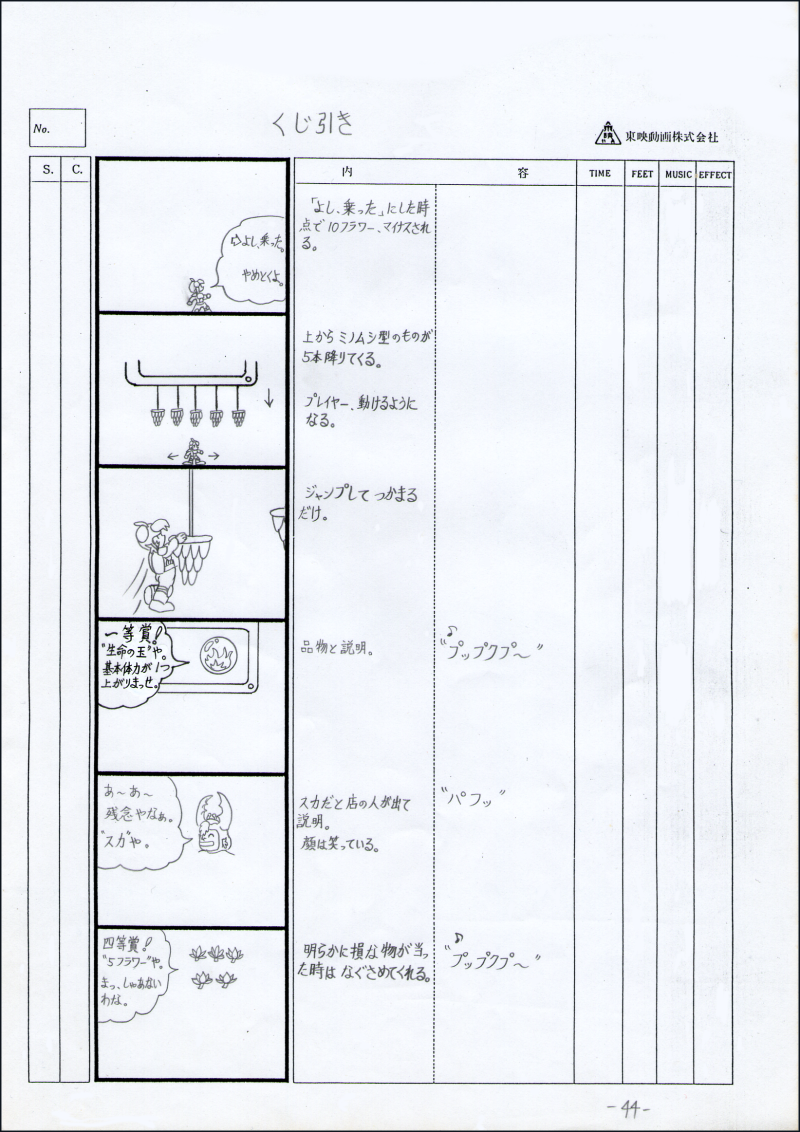 くじ引き
No.
東映動画株式会社
S. C. 内 容 TIME FEET MUSIC EFFECT
⇨よし、乗った。
やめとくよ。
「よし、乗った」にした時
点で10フラワー、マイナスされ
る。
上からミノムシ型のものが
5本降りてくる。
プレイヤー、動けるように
なる。
ジャンプしてつかまる
だけ。
一等賞!
"生命の玉"や。
基本体力が1つ
上がりまっせ。
品物と説明。
♪
"プップクプ〜"
あ〜あ〜
残念やなぁ。
"スカ"や。
スカだと店の人が出て
説明。
顔は笑っている。
"パフッ"
四等賞!
"5フラワー"や。
まっ、しゃあない
わな。
明らかに損な物が当っ
た時はなぐさめてくれる。
♪
"プップクプ〜"
-44-